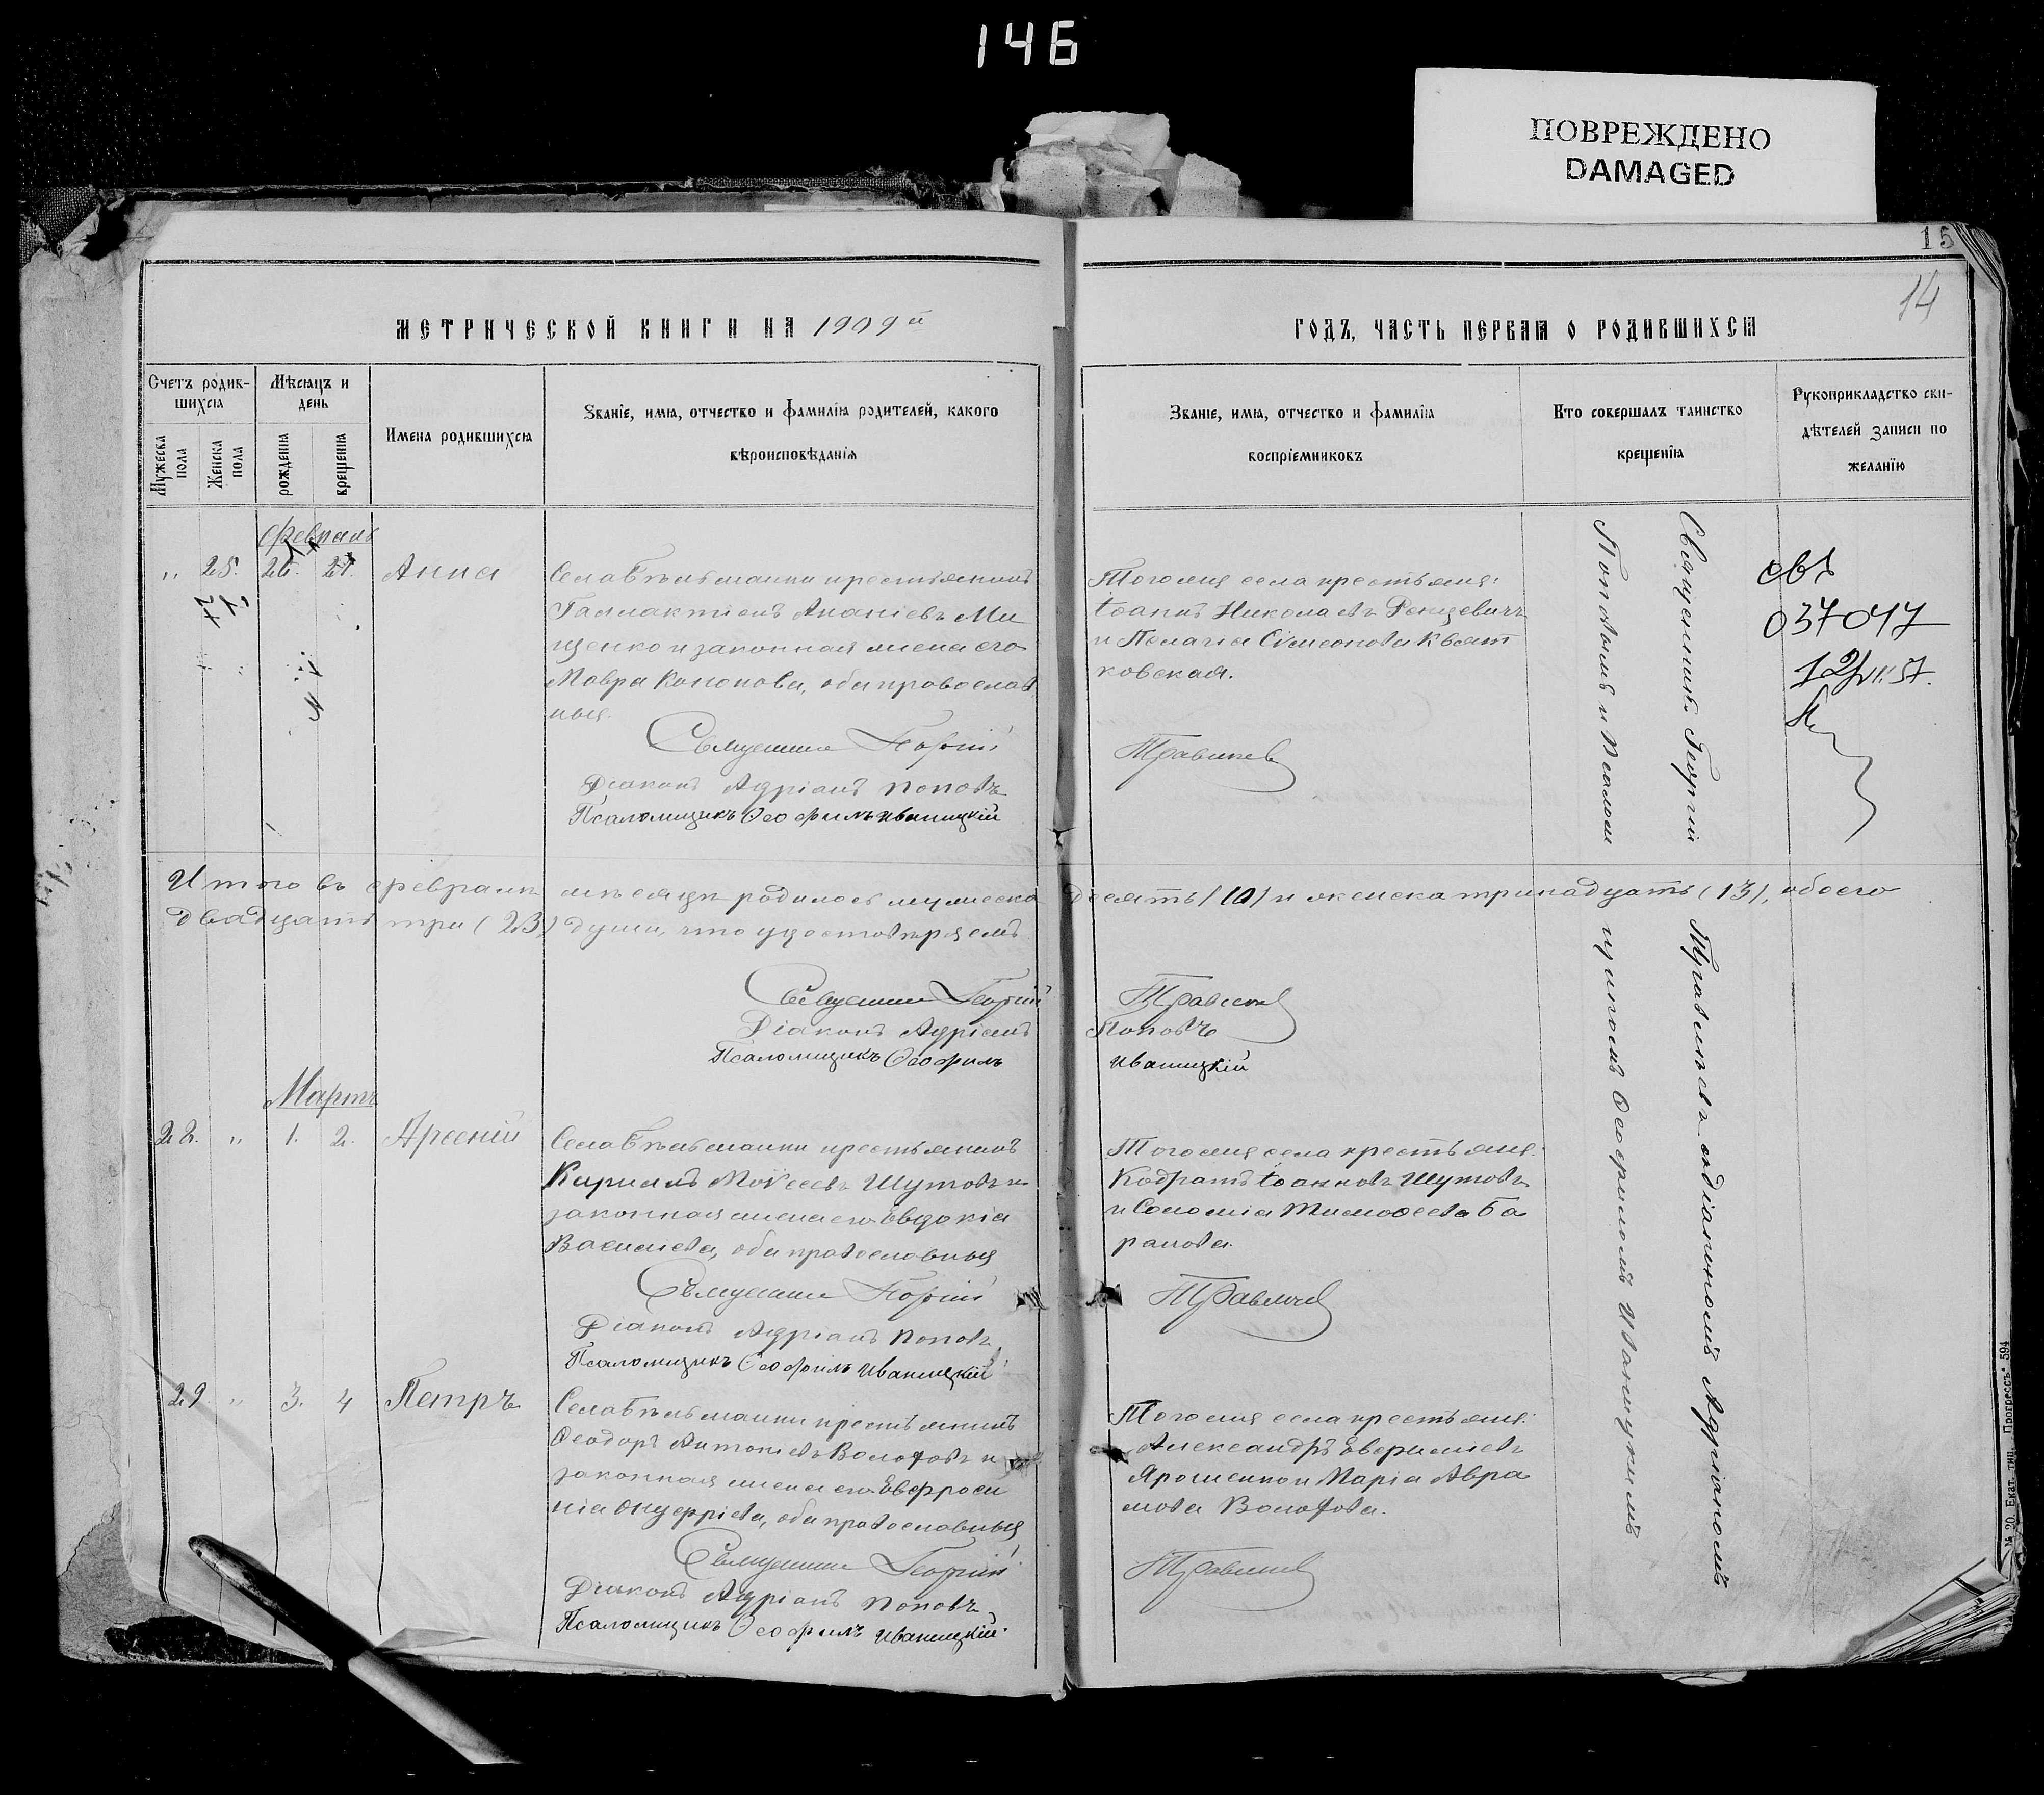 146
ПОВРЕЖДЕНО
DAMAGED
15
14
МЕТРИЧЕСКОЙ КНИГИ НА 1909й
ГОДЪ, ЧАСТЬ ПЕРВАЯ О РОДИВШИХСЯ
Счетъ родив-
шихся
Мужеска
пола
Женска
пола
Мѣсяцъ и
день
рожденія
крещенія
Имена родившихся
Званіе, имя, отчество и фамилія родителей, какого
вѣроисповѣданія
Званіе, имя, отчество и фамилія
воспріемниковъ
Кто совершалъ таинство
крещенія
Рукоприкладство сви-
дѣтелей записи по
желанію
Февраль
" 25. 26. 27. Анна
Села Бѣльманки крестьянинъ
Галактіонъ Ананіевъ Ми
щенко и законная жена его
Мавра Кононова, оба православ
ныя.
Священникъ Георгій
Діаконъ Адріанъ Поповъ
Псаломщикъ Ѳеофилъ Иваницкій
Того же села крестьяне:
Іоаннъ Николаевъ Ренцевичъ
и Пелагія Сімеонова Квят
ковская.
Травлевъ
свѣ
037047
Итого въ февралѣ мѣсяцѣ родилось мужеска десять (10) и женска тринадцать (13), обоего
двадцать три (23) души, что удостовѣряемъ
Священникъ Георгій
Діаконъ Адріанъ Поповъ
Псаломщикъ Ѳеофилъ Иваницкій
Мартъ
22. " 1. 2. Арсеній
Села Бѣльманки крестьянинъ
Кириллъ Моѵсеевъ Шутовъ и
законная жена его Евдокія
Василіева, оба православныя
Священникъ Георгій
Діаконъ Адріанъ Поповъ
Псаломщикъ Ѳеофилъ Иваницкій
Того же села крестьяне:
Кодратъ Іоанновъ Шутовъ
и Соломія Тимоѳеева Ба
ранова.
29 " 3. 4 Петръ
Села Бѣльманки крестьянинъ
Ѳеодоръ Антоніевъ Волофовъ и
законная жена его Евфроси
нія Онуфріева, оба православныя
Священникъ Георгій
Діаконъ Адріанъ Поповъ
Псаломщикъ Ѳеофилъ Иваницкій.
Того же села крестьяне:
Александръ Евфиміевъ
Ярошенко и Марія Авра
мова Волофова.
Священникъ Георгій
съ діакономъ Адріаномъ
Поповымъ и псалом
щикомъ Ѳеофиломъ Иваницкимъ
№ 20. Екат. тип. „Прогрессъ" 594